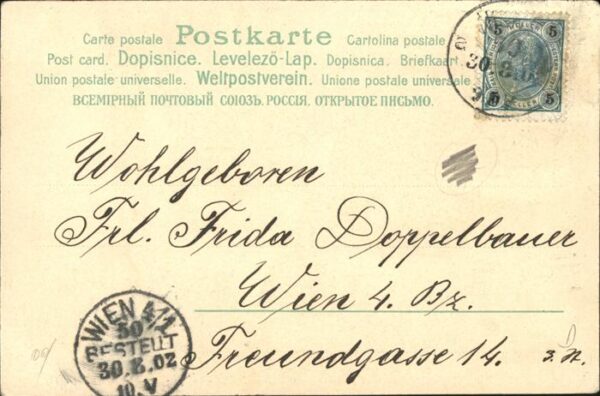 Carte postale Postkarte Cartolina postale
Post card. Dopisnice. Levelező-Lap. Dopisnica. Briefkaart.
Union postale universelle. Weltpostverein. Unione postale universale.
ВСЕМІРНЫЙ ПОЧТОВЫЙ СОЮЗЪ. РОССІЯ. ОТКРЫТОЕ ПИСЬМО.
5 5
30.8.02
5 5
HELLER
Wohlgeboren
Frl. Frida Doppelbauer
Wien 4. Bz.
Freundgasse 14.
WIEN 4/1
50
BESTELLT
30.8.02
10.V